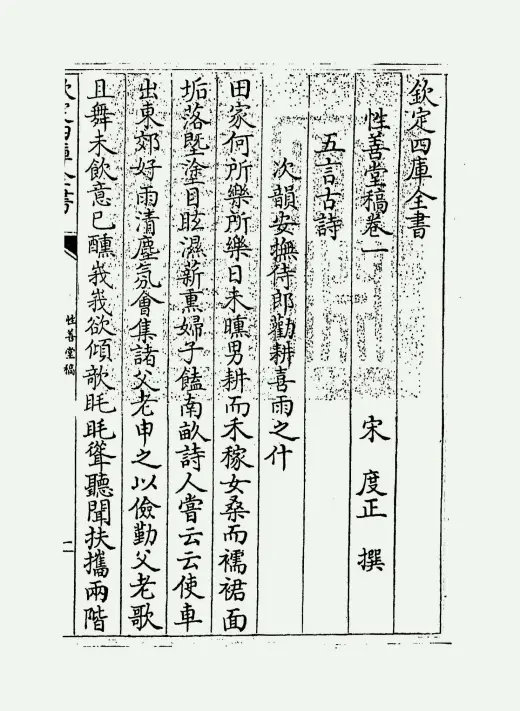 欽定四庫全書
性善堂稿卷一
宋 度正 撰
五言古詩
次韻安撫侍郎勸耕喜雨之什
田家何所樂所樂日未曛男耕而禾稼女桑而襦裙面
垢落塈塗目眩濕薪熏婦子饁南畝詩人嘗云云使車
出東郊好雨清塵氛會集諸父老申之以儉勤父老歌
且舞未飲意已醺峩峩欲傾欹眊眊聳聽聞扶攜兩階
欽定四庫全書
性善堂稿
一